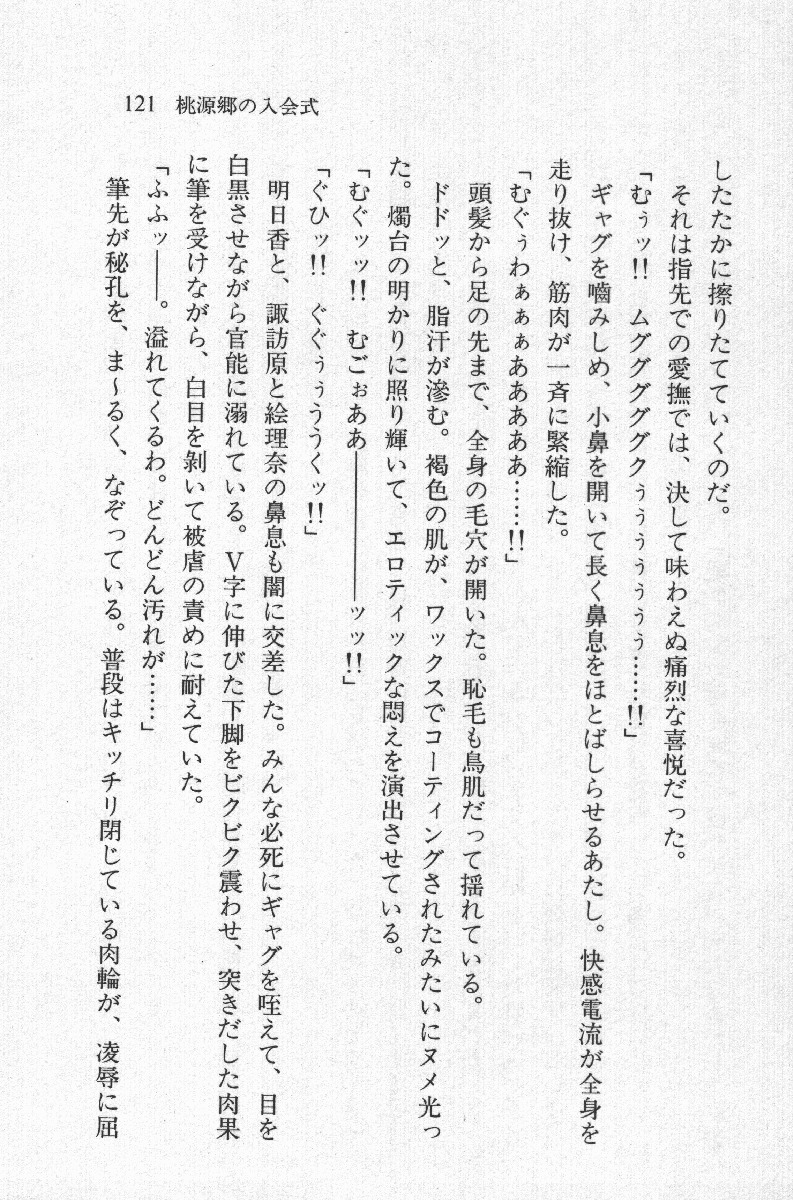 121 桃源郷の入会式
したたかに擦りたてていくのだ。
それは指先での愛撫では、決して味わえぬ痛烈な喜悦だった。
「むぅッ!! ムググググググクぅぅぅぅぅぅ……!!」
ギャグを嚙みしめ、小鼻を開いて長く鼻息をほとばしらせるあたし。快感電流が全身を
走り抜け、筋肉が一斉に緊縮した。
「むぐぅわぁぁぁあああああ……!!」
頭髪から足の先まで、全身の毛穴が開いた。恥毛も鳥肌だって揺れている。
ドドッと、脂汗が滲む。褐色の肌が、ワックスでコーティングされたみたいにヌメ光っ
た。燭台の明かりに照り輝いて、エロティックな悶えを演出させている。
「むぐッッ!! むごぉああ――――――ッッ!!」
「ぐひッ!! ぐぐぅぅううくッ!!」
明日香と、諏訪原と絵理奈の鼻息も闇に交差した。みんな必死にギャグを咥えて、目を
白黒させながら官能に溺れている。V字に伸びた下脚をビクビク震わせ、突きだした肉果
に筆を受けながら、白目を剝いて被虐の責めに耐えていた。
「ふふッ――。溢れてくるわ。どんどん汚れが……」
筆先が秘孔を、ま～るく、なぞっている。普段はキッチリ閉じている肉輪が、凌辱に屈